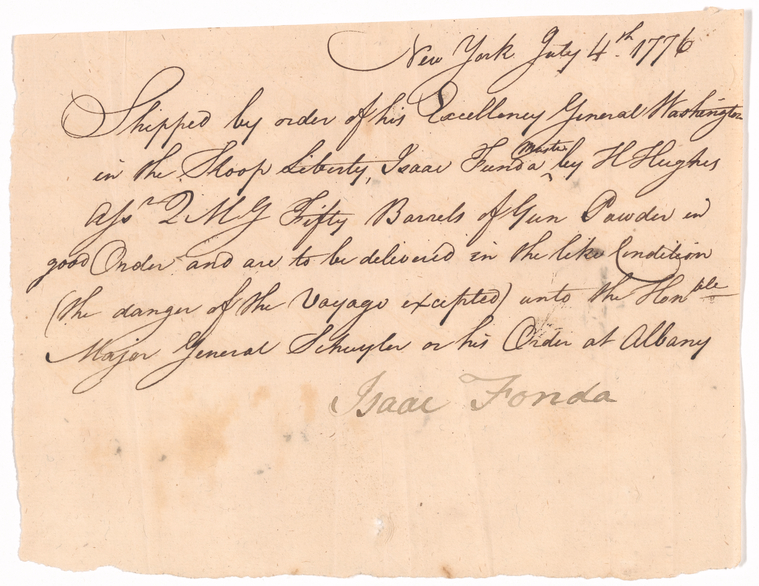 New York July 4th. 1776
Shipped by order of his Excellency General Washington
in the Sloop Liberty, Isaac Funda Master by H Hughes
Assn Q M G Fifty Barrels of Gun Powder in
good Order and are to be delivered in the like Condition
(the danger of the Voyage excepted) unto the Honble
Major General Schuyler or his Order at Albany
Isaac Fonda